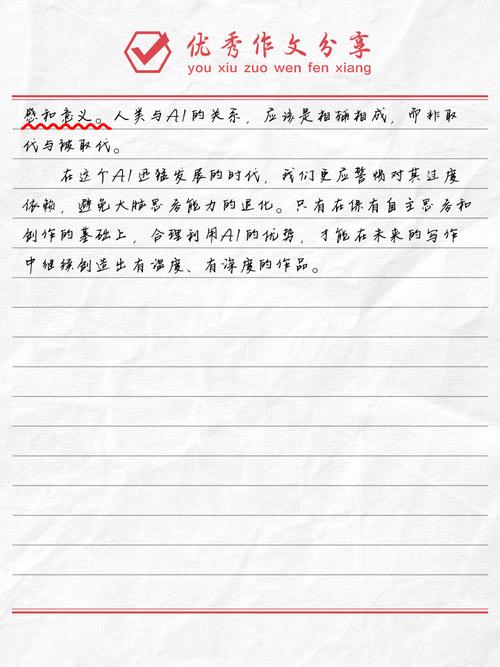 优秀作文分享
you xiu zuo wen fen xiang
感和意义。人类与AI的关系，应该是相辅相成，而非取
代与被取代。
在这个AI迅猛发展的时代，我们更应警惕对其过度
依赖，避免大脑思考能力的退化。只有在保有自主思考和
创作的基础上，合理利用AI的优势，才能在未来的写作
中继续创造出有温度、有深度的作品。